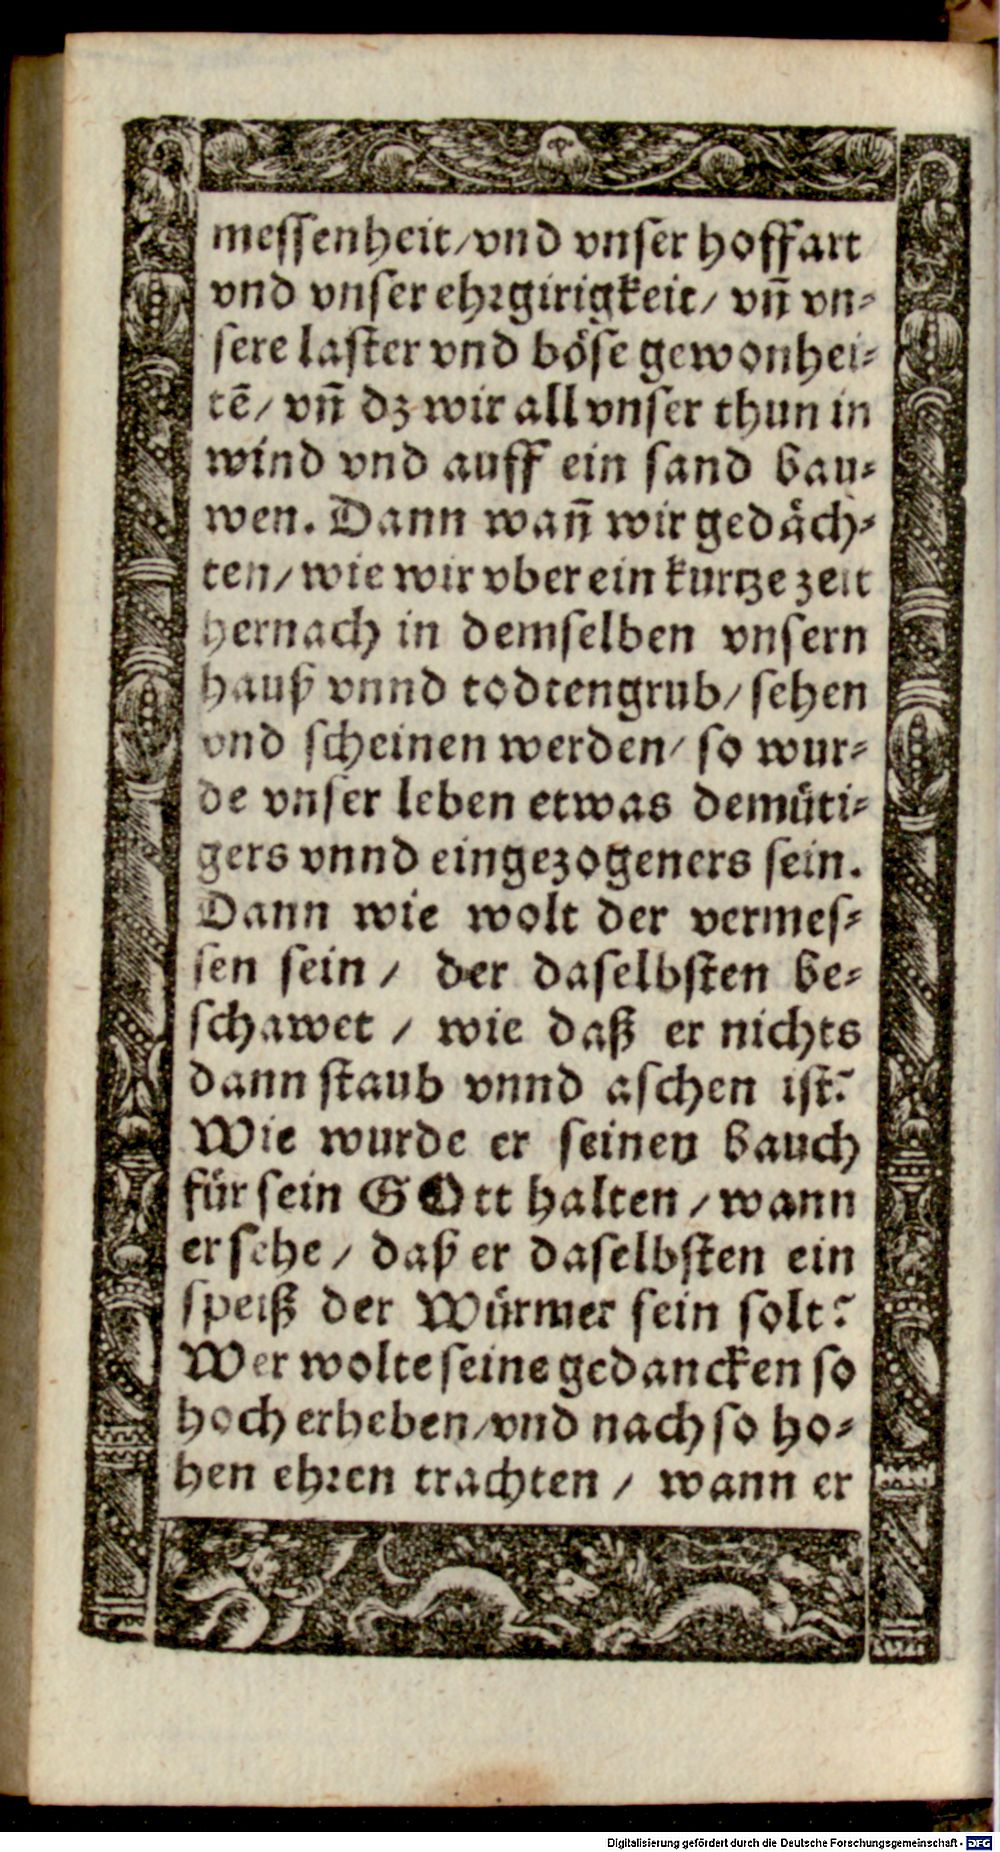 messenheit/vnd vnser hoffart
vnd vnser ehrgirigkeit/ vn̄ vn-
sere laster vnd böse gewonhei-
tē/ vn̄ dz wir all vnser thun in
wind vnd auff ein sand bau-
wen. Dann wañ wir gedäch-
ten/ wie wir vber ein kurtze zeit
hernach in demselben vnsern
hauß vnnd todtengrub/ sehen
vnd scheinen werden/ so wur-
de vnser leben etwas demüti-
gers vnnd eingezogeners sein.
Dann wie wolt der vermes-
sen sein / der daselbsten be-
schawet / wie daß er nichts
dann staub vnnd aschen ist?
Wie wurde er seinen bauch
für sein GOtt halten / wann
er sehe / daß er daselbsten ein
speiß der Würmer sein solt?
Wer wolte seine gedancken so
hoch erheben/vnd nach so ho-
hen ehren trachten / wann er
Digitalisierung gefördert durch die Deutsche Forschungsgemeinschaft - DFG